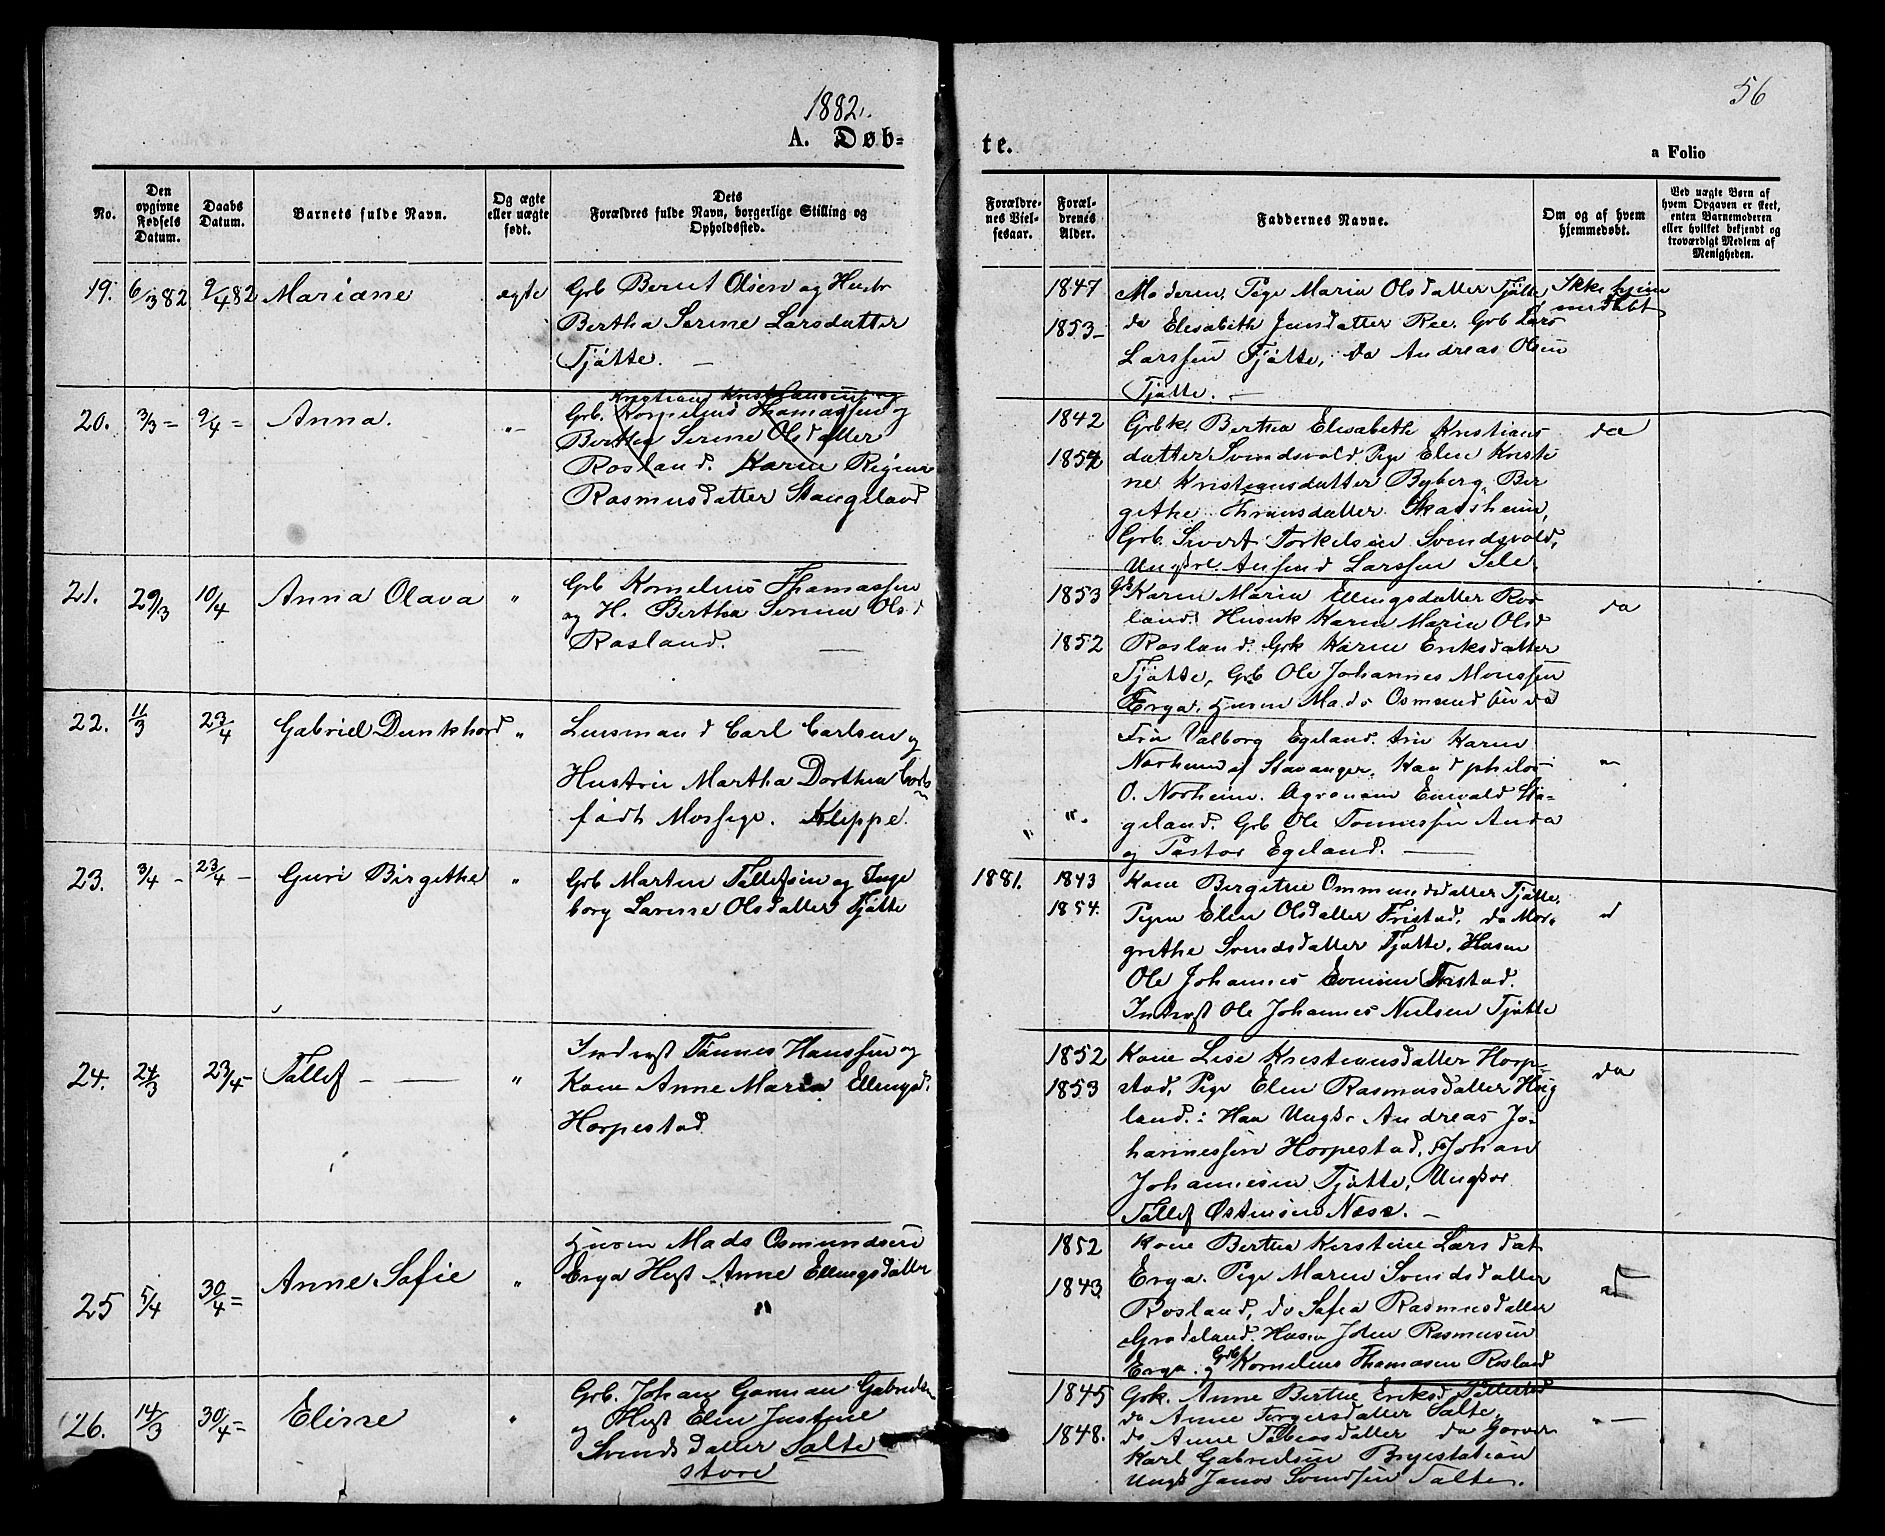 1882.
56
A. Døb=
te.
a Folio
No.
Den opgivne Fødsels Datum.
Daabs Datum.
Barnets fulde Navn.
Og ægte eller uægte født.
Dets Forældres fulde Navn, borgerlige Stilling og Opholdsted.
Forældrenes Vielsesaar.
Forældrenes Alder.
Faddernes Navne.
Om og af hvem hjemmedøbt.
Ved uægte Børn af hvem Opgaven er skeet, enten Barnemoderen eller hvilket bekjendt og troværdigt Medlem af Menigheden.
19. 6/3 82 9/4 82 Mariane ægte
Grb Bernt Olsen og Hustr
Bertha Serine Larsdatter
Tjøtte. —
1847
1853 –
Moderen, Pige Maria Olsdatter Tjøtte,
do Elisabeth Jensdatter Ree. Grb Lars
Larssen Tjøtte, do Andreas Olsen
Tjøtte. —
Ikke hjem
medøbt
20. 3/3 = 9/4 = Anna. "–
Kristian Kristiansen og
Grb. Kornelius Thomassen og
Bertha Serine Olsdatter
Rosland. Karen Regine
Rasmusdatter Stangeland
1842
1854
Grbk. Bertha Elisabeth Kristians
datter Svindsvold. Pige Elen Kristi
ne Kristiansdatter Byberg, Ber
githe datter Skadsheim,
Grb. Sivert Torkelsen Svindsvold,
Ungkrl. Larssen Sele.
do
21. 29/3 10/4 Anna Olava "
Grb Kornelius Thomassen
og H. Bertha Serine Olsd
Rosland. —
1853
1852
Gbk Karen Maria Ellingsdatter Ros
land. Husmk Karen Maria Olsd
Rosland. Grk Karen Eriksdatter
Tjøtte, Grb Ole Johannes Monssen
Erga. Husm Mads Osmundsen do
do
22. 11/3 23/4 Gabriel Dunkhord "
Lensmand Carl Carlsen og
Hustru Martha Dorthea
født Mossige. Kleppe.
" "
Fru Valborg Egeland. Fru Karen
Norheim af Stavanger, Kand philos
O. Norheim. Agronom Enevald Sta-
geland. Grb Ole Tønnessen Anda
og Pastor Egeland. —
"
23. 3/4 – 23/4 – Guri Birgithe "
Grb Morten Tollefsen og Inge
borg Larine Olsdatter Tjøtte
1881.
1843
1854.
Kone Bergitrie Ommundsdatter Tjøtte,
Pigen Elen Olsdatter Fristad, do Mar-
grethe Svendsdatter Tjøtte, Husm
Ole Johannes Fristad.
Inderst Ole Johannes Nielsen Tjøtte
d
24. 24/3 23/4 – Tollef — — "
Inderst Tønnes Hanssen og
Kone Anne Maria Ellingsd.
Horpestad
1852
1853
Kone Lise Kristiansdatter Horpe-
stad, Pige Elen Rasmusdatter Høg
land. i Haa Ungkr Andreas Jo-
hannessen Horpestad, Johan
Johannesen Tjøtte, Ungkar
Tollef Østensen Næse. —
do
25 5/4 30/4 = Anne Sofie "
Husm Mads Osmundsen
Erga Hust Anne Ellingsdatter
"
1852
1843
Kone Bertha Kirstine Lars dat
Erga. Pige Maren Svendsdatter
Rosland, do Sofia Rasmusdatter
Grødeland. Husm John Rasmusen
Erga. og Grb Kornelius Thomasen Rosland
26. 14/3 30/4 = Elisse "
Grb. Johan Garman Gabrielsen
og Hust Elen Justine
Svendsdatter Salte
store
1845
1848.
Grk. Anne Berthe Eriksd
do Anne Torgersdatter Salte,
do Anne Tobiasdatter do
Karl Gabrielsen Bryestation
Ungk Janas Svendsen Salte.
"–